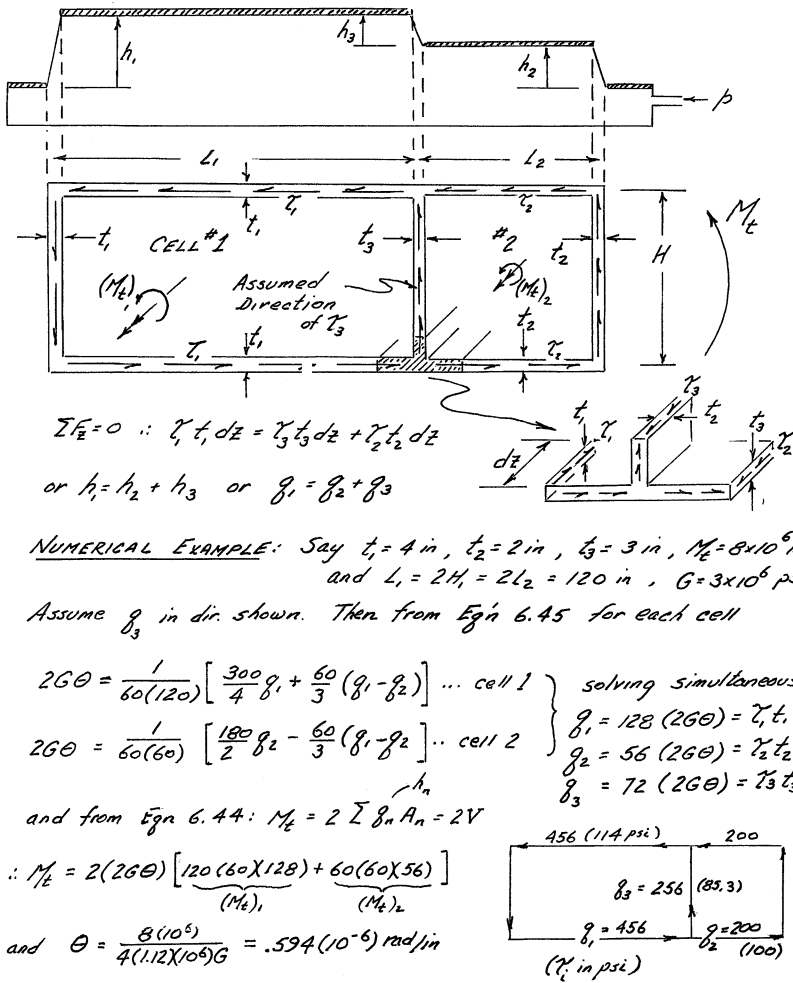 h₁
h₃
h₂
p
L₁
L₂
τ₁
τ₂
t₁
t₁
CELL #1
t₃
#2
t₂
H
M_t
(M_t)₁
Assumed
Direction
of τ₃
(M_t)₂
τ₁
t₁
t₂
τ₂
ΣF_z = 0 ∴ τ₁ t₁ dz = τ₃ t₃ dz + τ₂ t₂ dz
or h₁ = h₂ + h₃ or q₁ = q₂ + q₃
dz
t₁
τ₁
τ₃
t₂
t₃
τ₂
NUMERICAL EXAMPLE: Say t₁ = 4 in, t₂ = 2 in, t₃ = 3 in, M_t = 8x10⁶
and L₁ = 2H₁ = 2L₂ = 120 in, G = 3x10⁶ ps
Assume q₃ in dir. shown. Then from Eq'n 6.45 for each cell
2Gθ = 1/60(120) [300/4 q₁ + 60/3 (q₁-q₂)] ... cell 1
2Gθ = 1/60(60) [180/2 q₂ - 60/3 (q₁-q₂] .. cell 2
solving simultaneous
q₁ = 128 (2Gθ) = τ₁ t₁
q₂ = 56 (2Gθ) = τ₂ t₂
q₃ = 72 (2Gθ) = τ₃ t₃
h_n
and from Eqn 6.44: M_t = 2 Σ q_n A_n = 2V
∴ M_t = 2(2Gθ) [120(60)(128) + 60(60)(56)]
(M_t)₁ (M_t)₂
and θ = 8(10⁶)/4(1.12)(10⁶)G = .594(10⁻⁶) rad/in
456 (114 psi)
200
q₃ = 256 (85.3)
q₁ = 456
q₂ = 200
(100)
(τᵢ in psi)